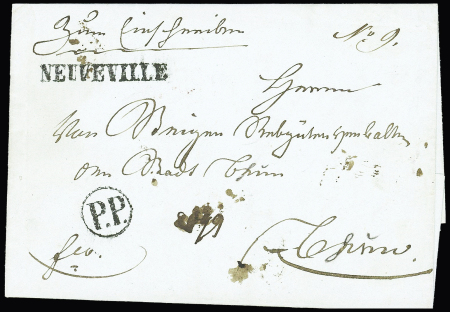 Zum Einschreiben
No 9.
NEUVEVILLE
Herrn
Von Steiger Rebgüterverwalter
der Stadt Thun
P.P.
fco.
Thun.